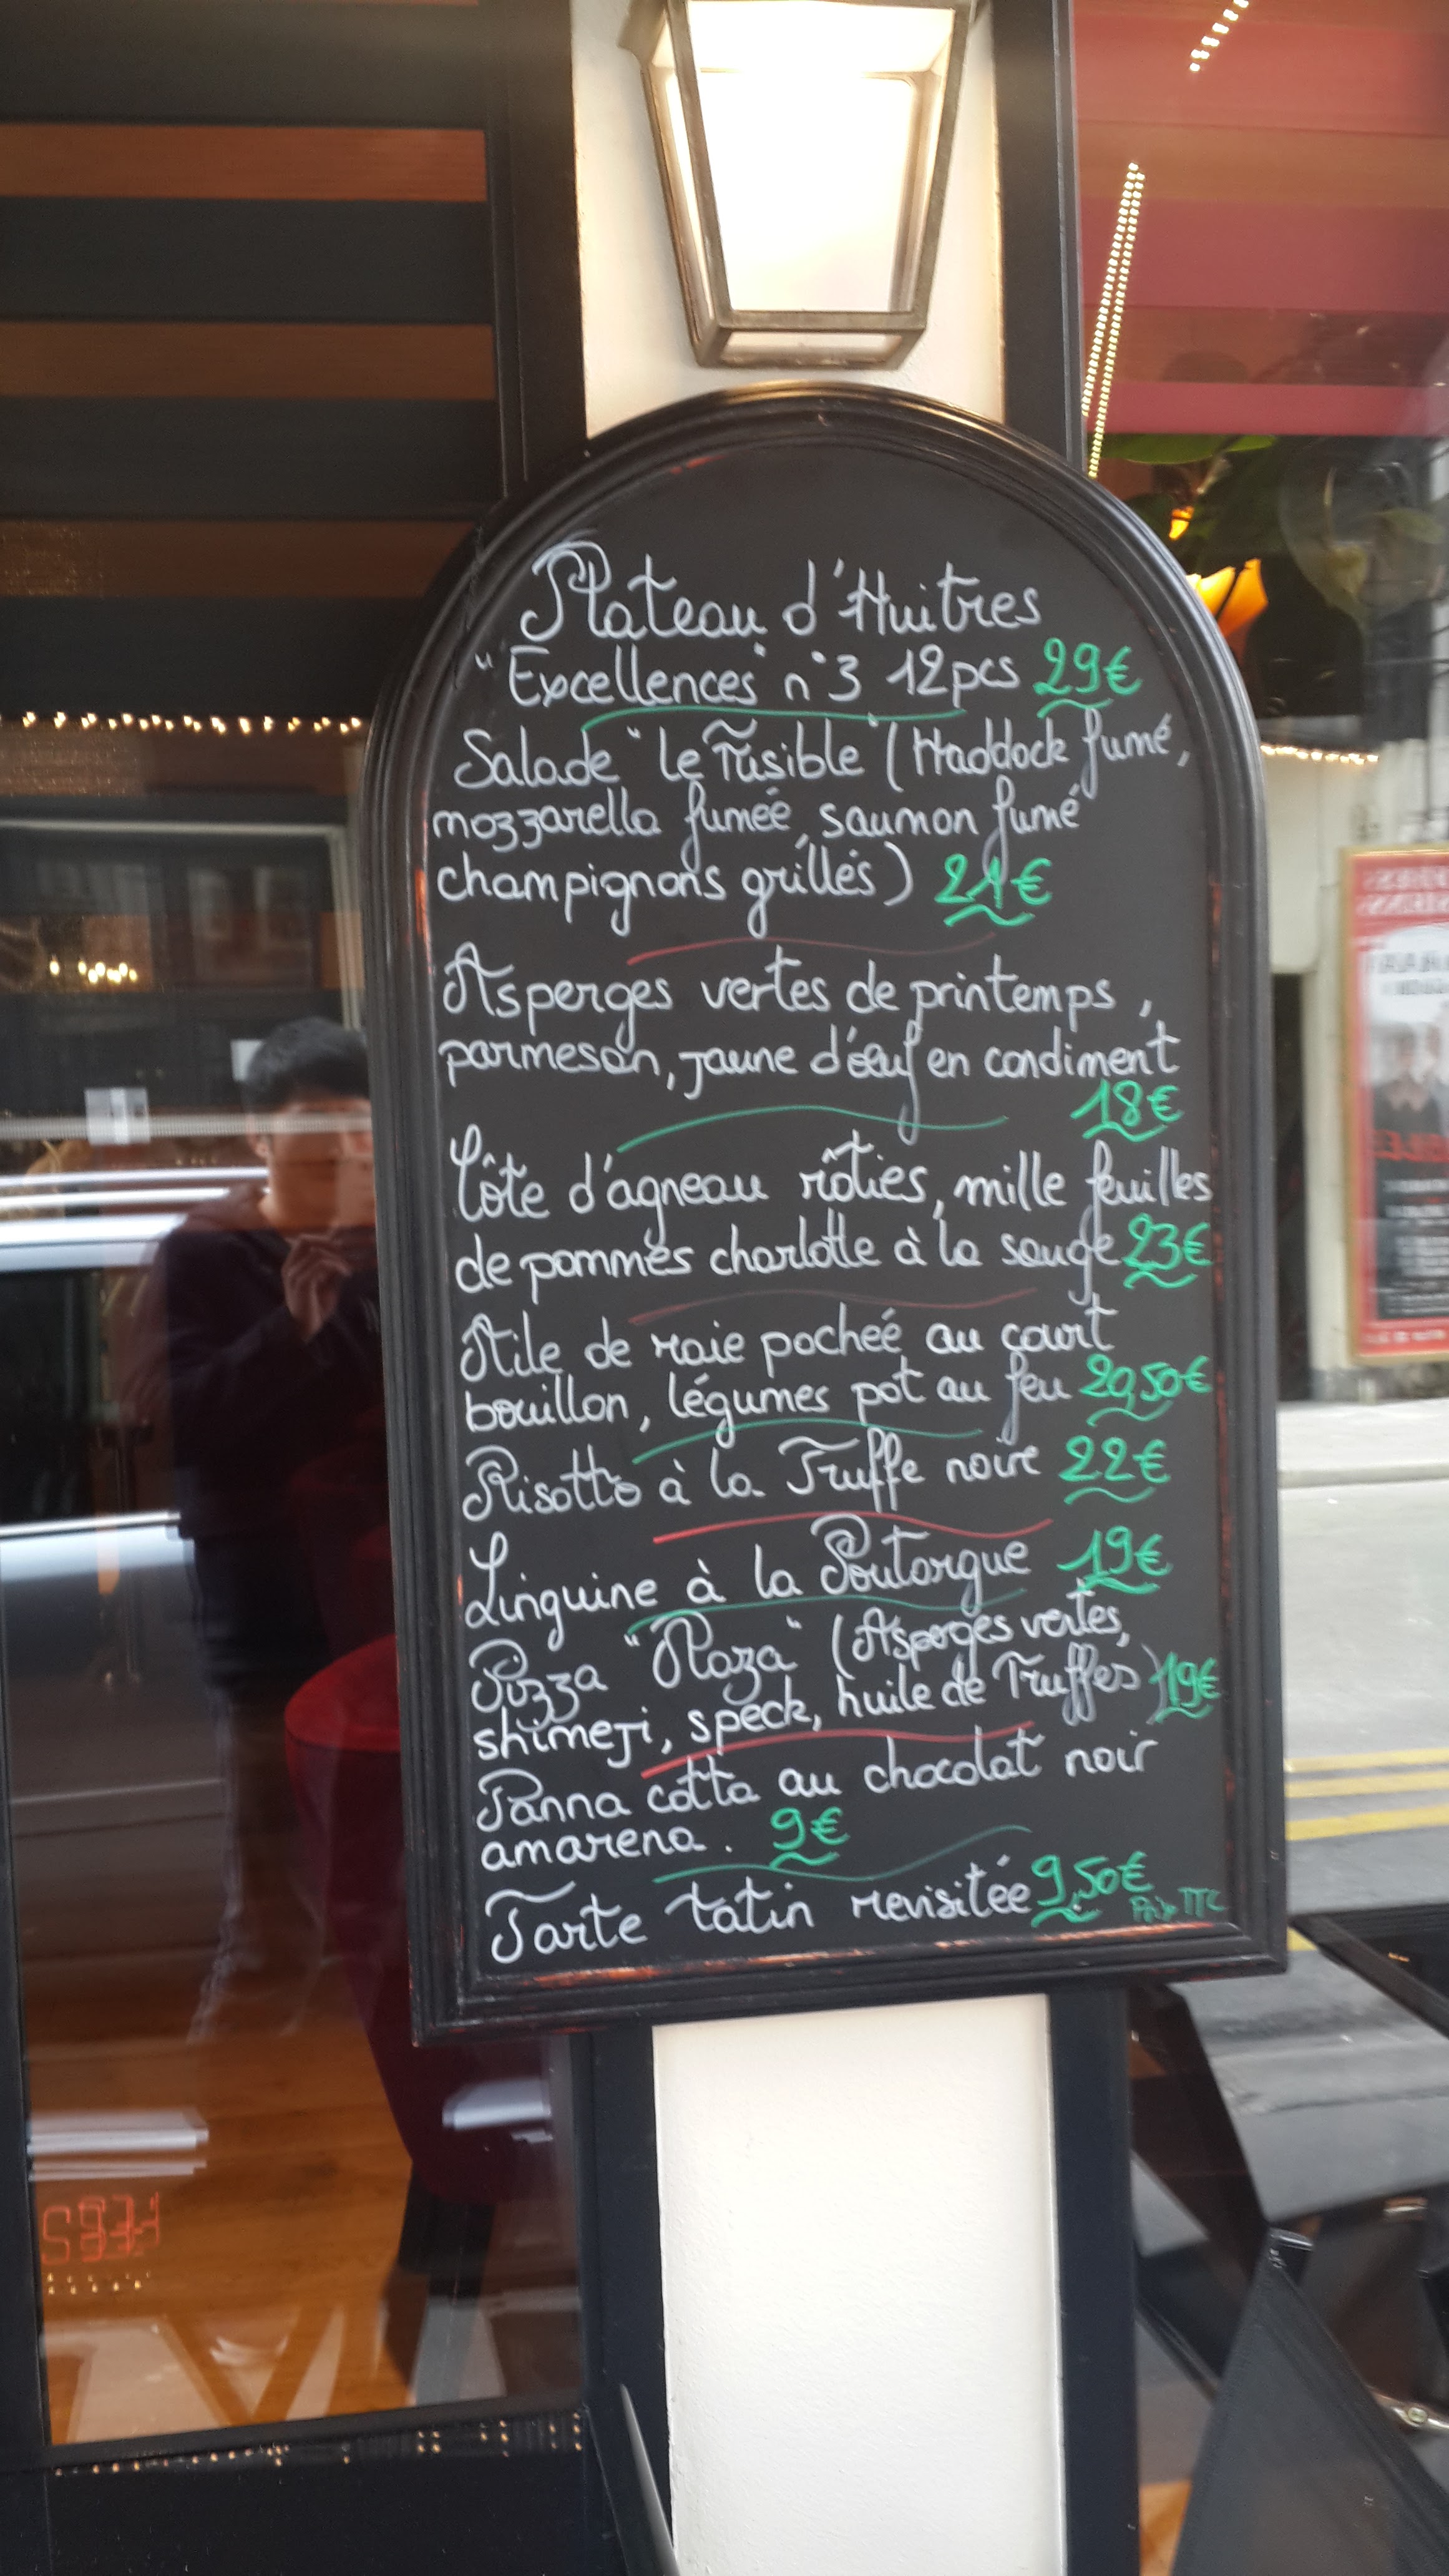 Plateau d'Huitres
"Excellences" n°3 12pcs 29€
Salade "Le Fusible" (Haddock fumé,
mozzarella fumée, saumon fumé
champignons grillés) 21€
Asperges vertes de printemps,
parmesan, jaune d'œuf en condiment
18€
Côte d'agneau rôties, mille feuilles
de pommes charlotte à la sauge 23€
Aile de raie pochée au court
bouillon, légumes pot au feu 20,50€
Risotto à la Truffe noire 22€
Linguine à la Poutargue 19€
Pizza "Plaza" (Asperges vertes,
shimeji, speck, huile de Truffes) 19€
Panna cotta au chocolat noir
amarena. 9€
Tarte tatin revisitée 9,50€
Prix TTC